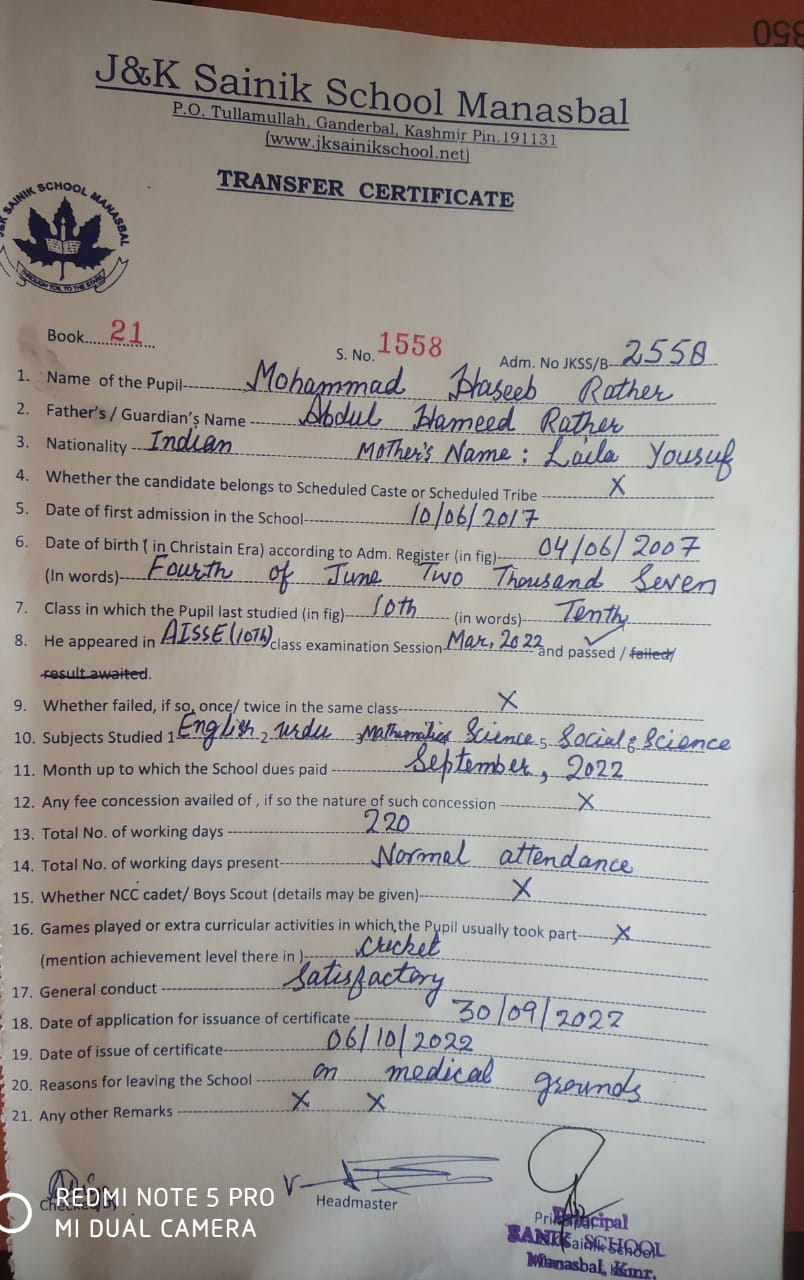 058
J&K Sainik School Manasbal
P.O. Tullamullah, Ganderbal, Kashmir Pin.191131
(www.jksainikschool.net)
TRANSFER CERTIFICATE
J&K SAINIK SCHOOL MANASBAL
THROUGH TOIL TO THE STARS
Book......21...
S. No. 1558
Adm. No JKSS/B--2558
1. Name of the Pupil----------Mohammad Haseeb Rather
2. Father's / Guardian's Name -------Abdul Hameed Rather
3. Nationality --Indian Mother's Name : Laila Yousuf
4. Whether the candidate belongs to Scheduled Caste or Scheduled Tribe ----------X
5. Date of first admission in the School----------10/06/2017
6. Date of birth ( in Christain Era) according to Adm. Register (in fig)---04/06/2007
(In words)--Fourth of June Two Thousand Seven
7. Class in which the Pupil last studied (in fig)---10th----(in words)---Tenth
8. He appeared in AISSE(10TH) class examination Session Mar, 2022 and passed / failed/
result awaited.
9. Whether failed, if so, once/ twice in the same class----------X
10. Subjects Studied 1 English 2 urdu 3 Mathematics Science 5 Social 6 Science
11. Month up to which the School dues paid ----------September, 2022
12. Any fee concession availed of , if so the nature of such concession ----------X
13. Total No. of working days ----------220
14. Total No. of working days present----------Normal attendance
15. Whether NCC cadet/ Boys Scout (details may be given)----------X
16. Games played or extra curricular activities in which the Pupil usually took part-----X
(mention achievement level there in )------Cricket
17. General conduct ----------Satisfactory
18. Date of application for issuance of certificate ----------30/09/2022
19. Date of issue of certificate----------06/10/2022
20. Reasons for leaving the School -------on medical grounds
21. Any other Remarks ----------X X
Headmaster
Principal
SANIK SCHOOL
Manasbal, Kmr.
REDMI NOTE 5 PRO
MI DUAL CAMERA